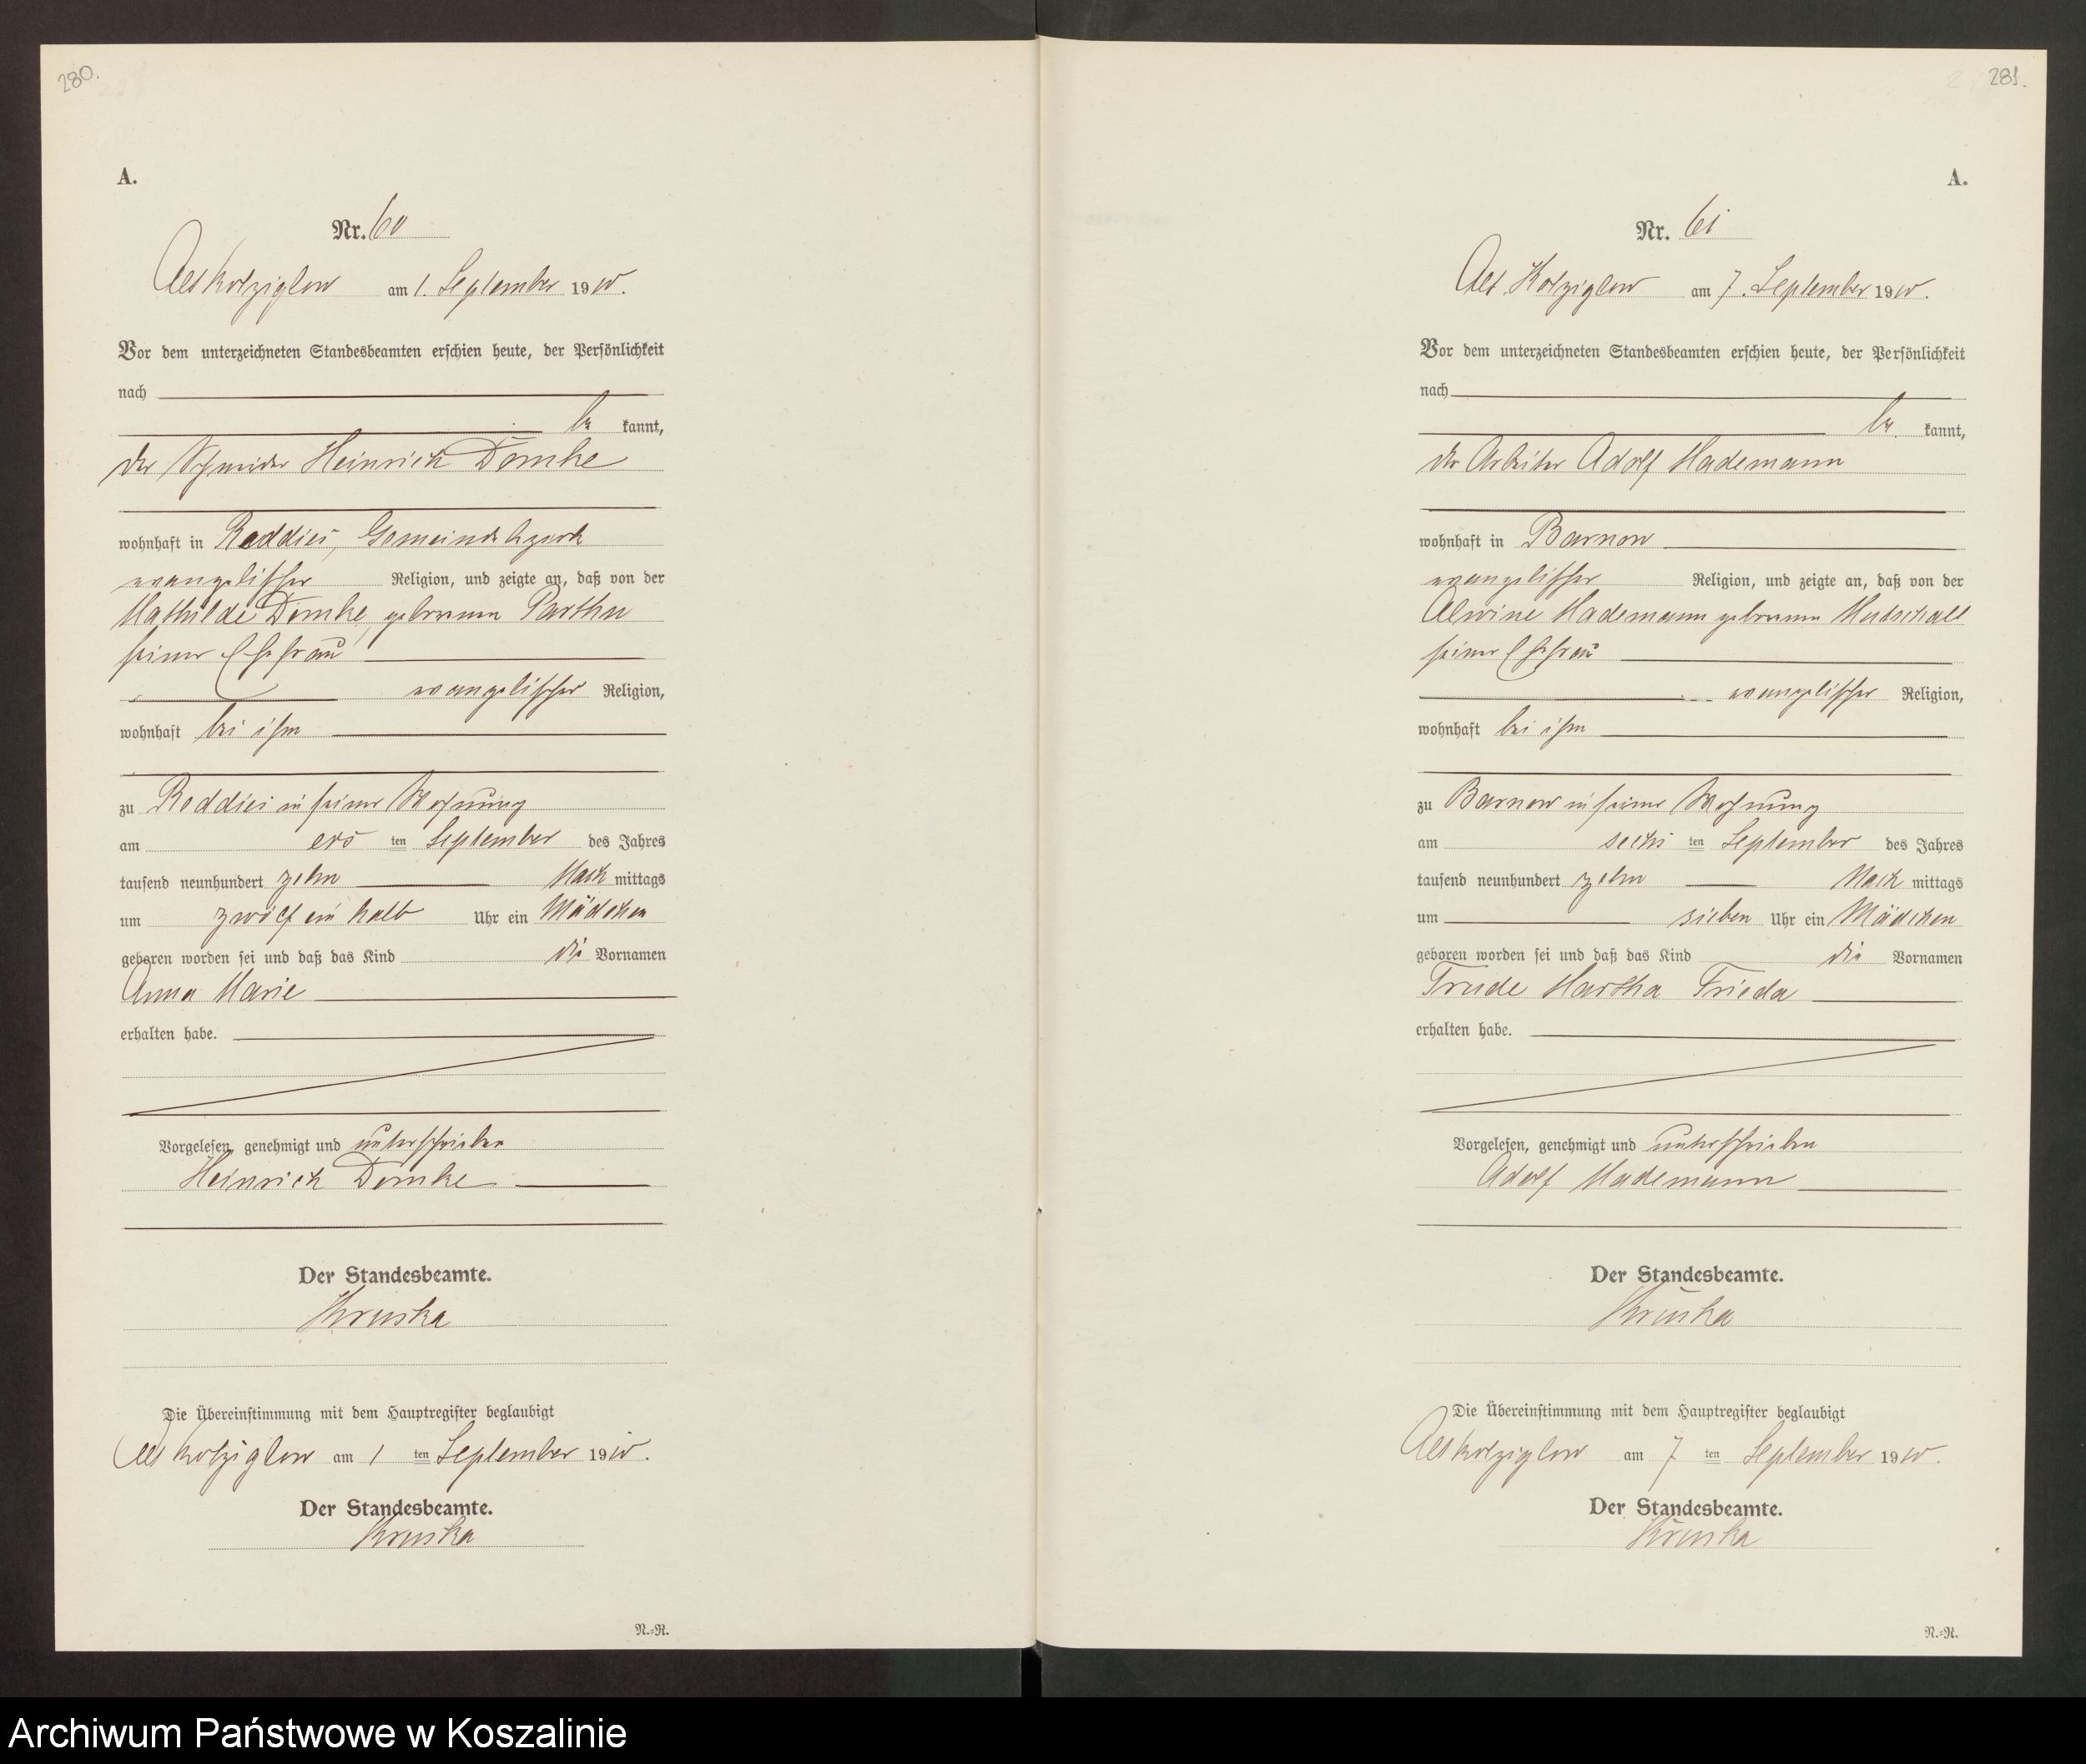 280.
A.
Nr. 60
Alt Kolziglow am 1. September 1910.
Vor dem unterzeichneten Standesbeamten erschien heute, der Persönlichkeit
nach
be kannt,
der Schneider Heinrich Domke
wohnhaft in Reddies, Gemeindebezirk
evangelischer Religion, und zeigte an, daß von der
Mathilde Domke, geborenen
seiner Ehefrau
evangelischer Religion,
wohnhaft bei ihm
zu Reddies in seiner Wohnung
am ers ten September des Jahres
tausend neunhundert zehn Nach mittags
um zwölf ein halb Uhr ein Mädchen
geboren worden sei und daß das Kind die Vornamen
Anna Marie
erhalten habe.
Vorgelesen, genehmigt und unterschrieben
Heinrich Domke
Der Standesbeamte.
Kruska
Die Übereinstimmung mit dem Hauptregister beglaubigt
Alt Kolziglow am 1 ten September 1910.
Der Standesbeamte.
Kruska
N.-R.
281.
A.
Nr. 61
Alt Kolziglow am 7. September 1910.
Vor dem unterzeichneten Standesbeamten erschien heute, der Persönlichkeit
nach
be kannt,
der Arbeiter Adolf Hademann
wohnhaft in Barnow
evangelischer Religion, und zeigte an, daß von der
Alwine Hademann geborenen
seiner Ehefrau
evangelischer Religion,
wohnhaft bei ihm
zu Barnow in seiner Wohnung
am sechs ten September des Jahres
tausend neunhundert zehn Nach mittags
um sieben Uhr ein Mädchen
geboren worden sei und daß das Kind die Vornamen
Trude Martha Frieda
erhalten habe.
Vorgelesen, genehmigt und unterschrieben
Adolf Hademann
Der Standesbeamte.
Kruska
Die Übereinstimmung mit dem Hauptregister beglaubigt
Alt Kolziglow am 7 ten September 1910.
Der Standesbeamte.
Kruska
N.-R.
Archiwum Państwowe w Koszalinie